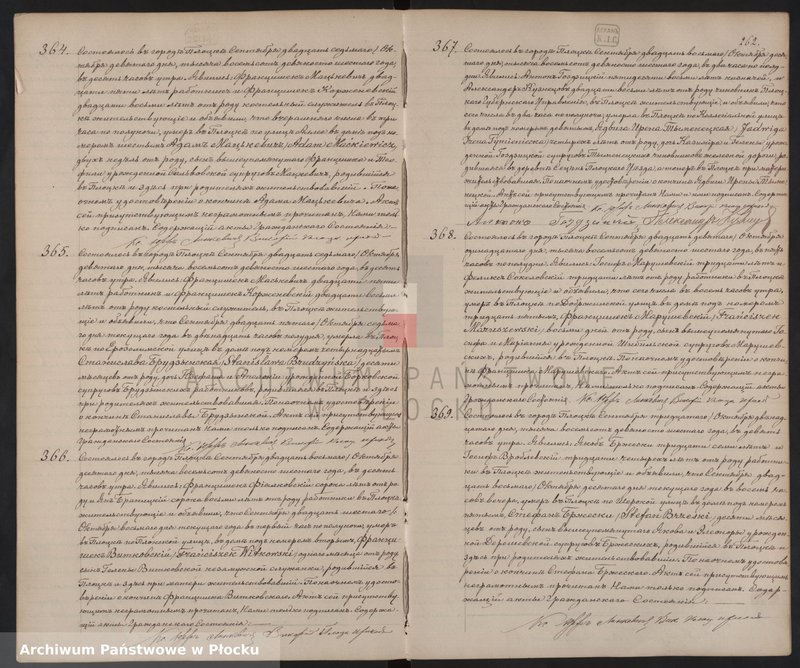 262.
364. Состоялось въ городѣ Плоцкѣ Сентября двадцать седьмаго / Ок-
тября девятаго дня, тысяча восемьсотъ девяносто шестаго года,
въ десять часовъ утра. Явились: Францишекъ Мацкевичъ двад-
цати пяти лѣтъ работникъ и Францишекъ Корженевскій
двадцати восьми лѣтъ отъ роду костельный служитель въ Плоц-
кѣ жительствующіе и объявили, что вчерашняго числа въ три
часа по полуночи, умеръ въ Плоцкѣ по улицѣ въ домѣ подъ но-
меромъ шестымъ Адамъ Мацкевичъ /Adam Mackiewicz/
двухъ недѣль отъ роду, сынъ вышеупомянутаго Францишка и Тео-
филіи урожденной супруговъ Мацкевичъ, родившійся
въ Плоцкѣ и здѣсь при родителяхъ жительствовавшій. По на-
очномъ удостовѣреніи о кончинѣ Адама Мацкевича. Актъ
сей присутствующимъ неграмотнымъ прочитанъ, Нами толь-
ко подписанъ. Содержащій акты Гражданскаго Состоянія
365. Состоялось въ городѣ Плоцкѣ Сентября двадцать седьмаго / Октября
девятаго дня, тысяча восемьсотъ девяносто шестаго года, въ десять
часовъ утра. Явились: Францишекъ Мацкевичъ двадцати пяти
лѣтъ работникъ и Францишекъ Корженевскій двадцати восьми
лѣтъ отъ роду костельный служитель, въ Плоцкѣ жительствую-
щіе и объявили, что Сентября двадцать пятаго / Октября седьма-
го дня текущаго года въ двѣнадцать часовъ полудня, умерла въ Плоц-
кѣ по Ерозолимской улицѣ въ домѣ подъ номеромъ четырнадцатымъ
Станислава Брудзыньская /Stanisława Brudzyńska/ десяти
мѣсяцевъ отъ роду, дочь
супруговъ Брудзыньскихъ работниковъ, родившаяся въ Плоцкѣ и здѣсь
при родителяхъ жительствовавшая. По наочномъ удостовѣреніи
о кончинѣ Станиславы Брудзыньской. Актъ сей присутствующимъ
неграмотнымъ прочитанъ, Нами только подписанъ. Содержащій акты
Гражданскаго Состоянія
366. Состоялось въ городѣ Плоцкѣ Сентября двадцать восьмаго / Октября
десятаго дня, тысяча восемьсотъ девяносто шестаго года, въ десять
часовъ утра. Явились: Францишекъ Фіялковскій сорока лѣтъ отъ ро-
ду и сорока восьми лѣтъ отъ роду работники въ Плоцкѣ
жительствующіе и объявили, что Сентября двадцать шестаго /
Октября восьмаго дня текущаго года въ первый часъ по полуночи, умеръ
въ Плоцкѣ по Плонской улицѣ, въ домѣ подъ номеромъ вторымъ, Франци-
шекъ Витковскій /Franciszek Witkowski/ одного мѣсяца отъ роду,
сынъ Елены Витковской незамужной служанки, родившійся въ
Плоцкѣ и здѣсь при матери жительствовавшій. По наочномъ удосто-
вѣреніи о кончинѣ Францишка Витковскаго. Актъ сей присутствую-
щимъ неграмотнымъ прочитанъ, Нами только подписанъ. Содержа-
щій акты Гражданскаго Состоянія
367. Состоялось въ городѣ Плоцкѣ Сентября двадцать восьмаго / Октября деся-
таго дня, тысяча восемьсотъ девяносто шестаго года, въ два часа по полуд-
ни. Явились: Антонъ Гоздзицкій пятидесяти восьми лѣтъ и
Александръ Кузнецовъ двадцати восьми лѣтъ отъ роду чиновникъ Плоц-
каго Губернскаго Правленія, въ Плоцкѣ жительствующіе, и объявили, что
сего числа въ два часа по полуночи, умерла въ Плоцкѣ по Коллегіальной улицѣ
въ домѣ подъ номеромъ девятымъ, Ядвига Ирена Тыменецкая /Jadwiga
Irena Tymieniecka/ четырехъ лѣтъ отъ роду, дочь Казиміра и Елены урож-
денной супруговъ Тыменецкихъ чиновника желѣзной дороги, ро-
дившаяся въ деревнѣ Плоцкаго Уѣзда, а теперь въ Плоцкѣ при матери
жительствовавшая. По наочномъ удостовѣреніи о кончинѣ Ядвиги Ирены Тыме-
нецкой. Актъ сей присутствующимъ прочитанъ, Нами и ними подписанъ. Содер-
жащій акты Гражданскаго Состоянія
368. Состоялось въ городѣ Плоцкѣ Сентября двадцать девятаго / Октября
одиннадцатаго дня, тысяча восемьсотъ девяносто шестаго года, въ
часовъ по полудни. Явились: Іосифъ Марушевскій тридцати лѣтъ и
Феликсъ Соколовскій тридцати лѣтъ отъ роду работники въ Плоцкѣ
жительствующіе и объявили, что сего числа въ восемь часовъ утра,
умеръ въ Плоцкѣ по Добржинской улицѣ въ домѣ подъ номеромъ
тридцать пятымъ, Францишекъ Марушевскій /Franciszek
Maruszewski/ восьми дней отъ роду, сынъ вышеупомянутаго Іо-
сифа и Маріанны урожденной супруговъ Марушев-
скихъ, родившійся въ Плоцкѣ. По наочномъ удостовѣреніи о кончи-
нѣ Францишка Марушевскаго. Актъ сей присутствующимъ негра-
мотнымъ прочитанъ, Нами только подписанъ. Содержащій акты
Гражданскаго Состоянія
369. Состоялось въ городѣ Плоцкѣ Сентября тридцатаго / Октября двѣнад-
цатаго дня, тысяча восемьсотъ девяносто шестаго года, въ девять
часовъ утра. Явились: Яковъ Бржескій тридцати семи лѣтъ и
Іосифъ Врублевскій тридцати четырехъ лѣтъ отъ роду работни-
ки въ Плоцкѣ жительствующіе и объявили, что Сентября двад-
цать восьмаго / Октября десятаго дня текущаго года въ восемь ча-
совъ вечера, умеръ въ Плоцкѣ по Широкой улицѣ въ домѣ подъ номеромъ
пятымъ, Стефанъ Бржескій /Stefan Brzeski/ десяти мѣся-
цевъ отъ роду, сынъ вышеупомянутаго Якова и Элеоноры урожден-
ной супруговъ Бржескихъ, родившійся въ Плоцкѣ и
здѣсь при родителяхъ жительствовавшій. По наочномъ удостовѣ-
реніи о кончинѣ Стефана Бржескаго. Актъ сей присутствующимъ
неграмотнымъ прочитанъ, Нами только подписанъ. Содер-
жащій акты Гражданскаго Состоянія
ARCHIWUM PAŃSTWOWE
W PŁOCKU
Archiwum Państwowe w Płocku